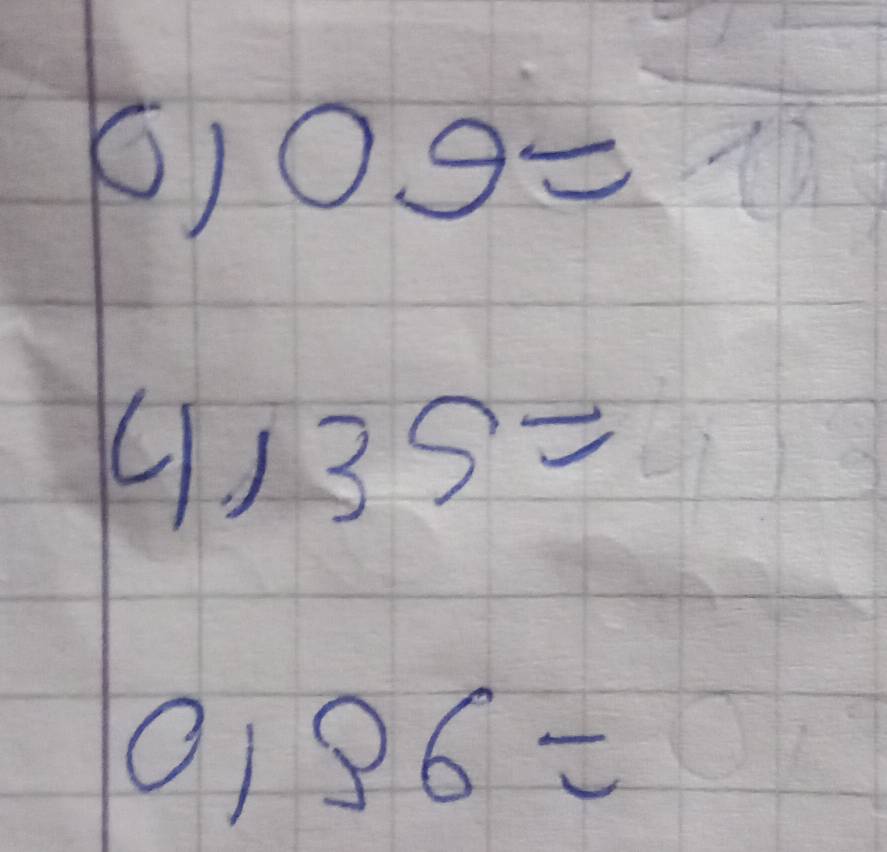 0,09=
4,35=
0,96=